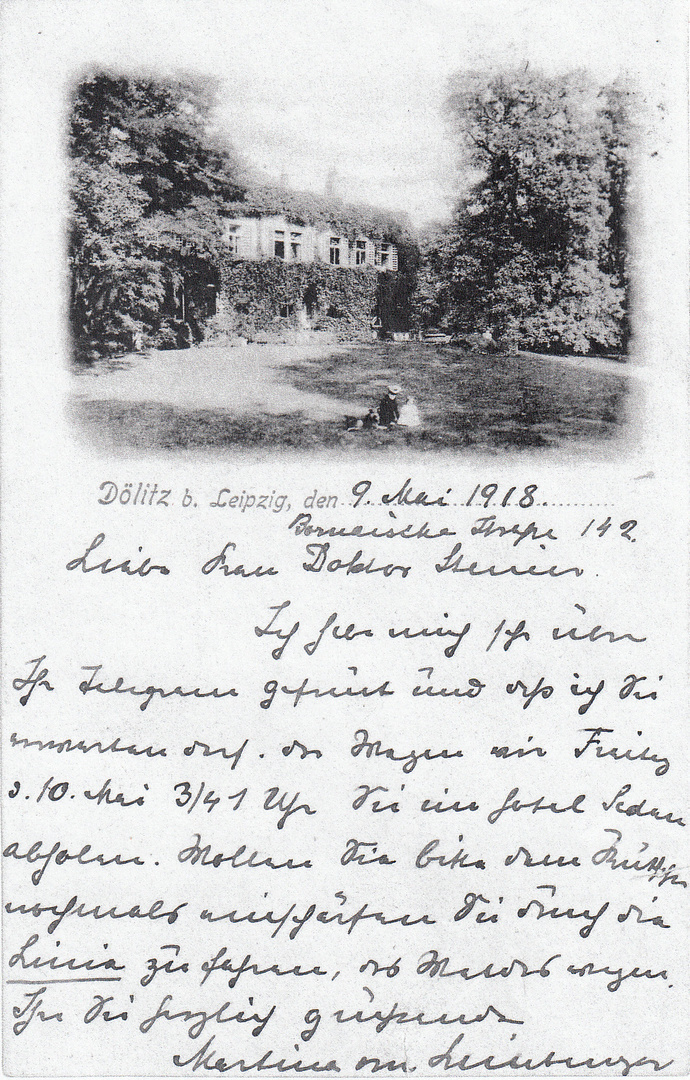 Dölitz b. Leipzig, den 9. Mai 1918.
Bornaische Straße 142.
Liebe Frau Doktor Steiner.
Ich habe mich sehr über
Ihr Telegram gefreut und daß ich Sie
erwarten darf. der Wagen wir Freitag
d. 10. Mai 3/4 1 Uhr Sie im Hotel Sedan
abholen. Wollen Sie bitte dem Kutscher
nochmals einschärfen Sie durch die
Linie zu fahren, des Waldes wegen.
Ihr Sie herzlich grüßende
Martina von